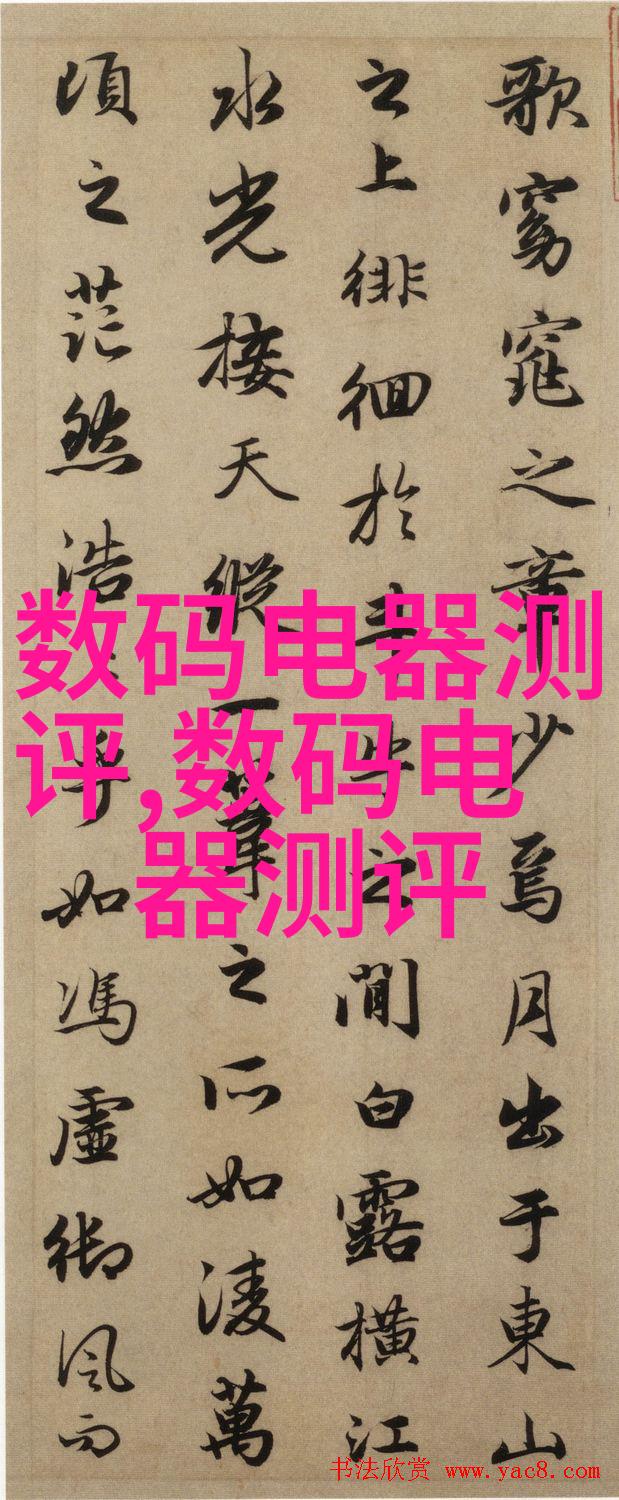 歌窈窕之章少焉月出于東山
之上徘徊於斗牛之間白露橫江
水光接天縱一葦之所如凌萬
頃之茫然浩浩乎如馮虛御風而
数码电器测
评,数码电
器测评
书法欣赏 www.yac8.com